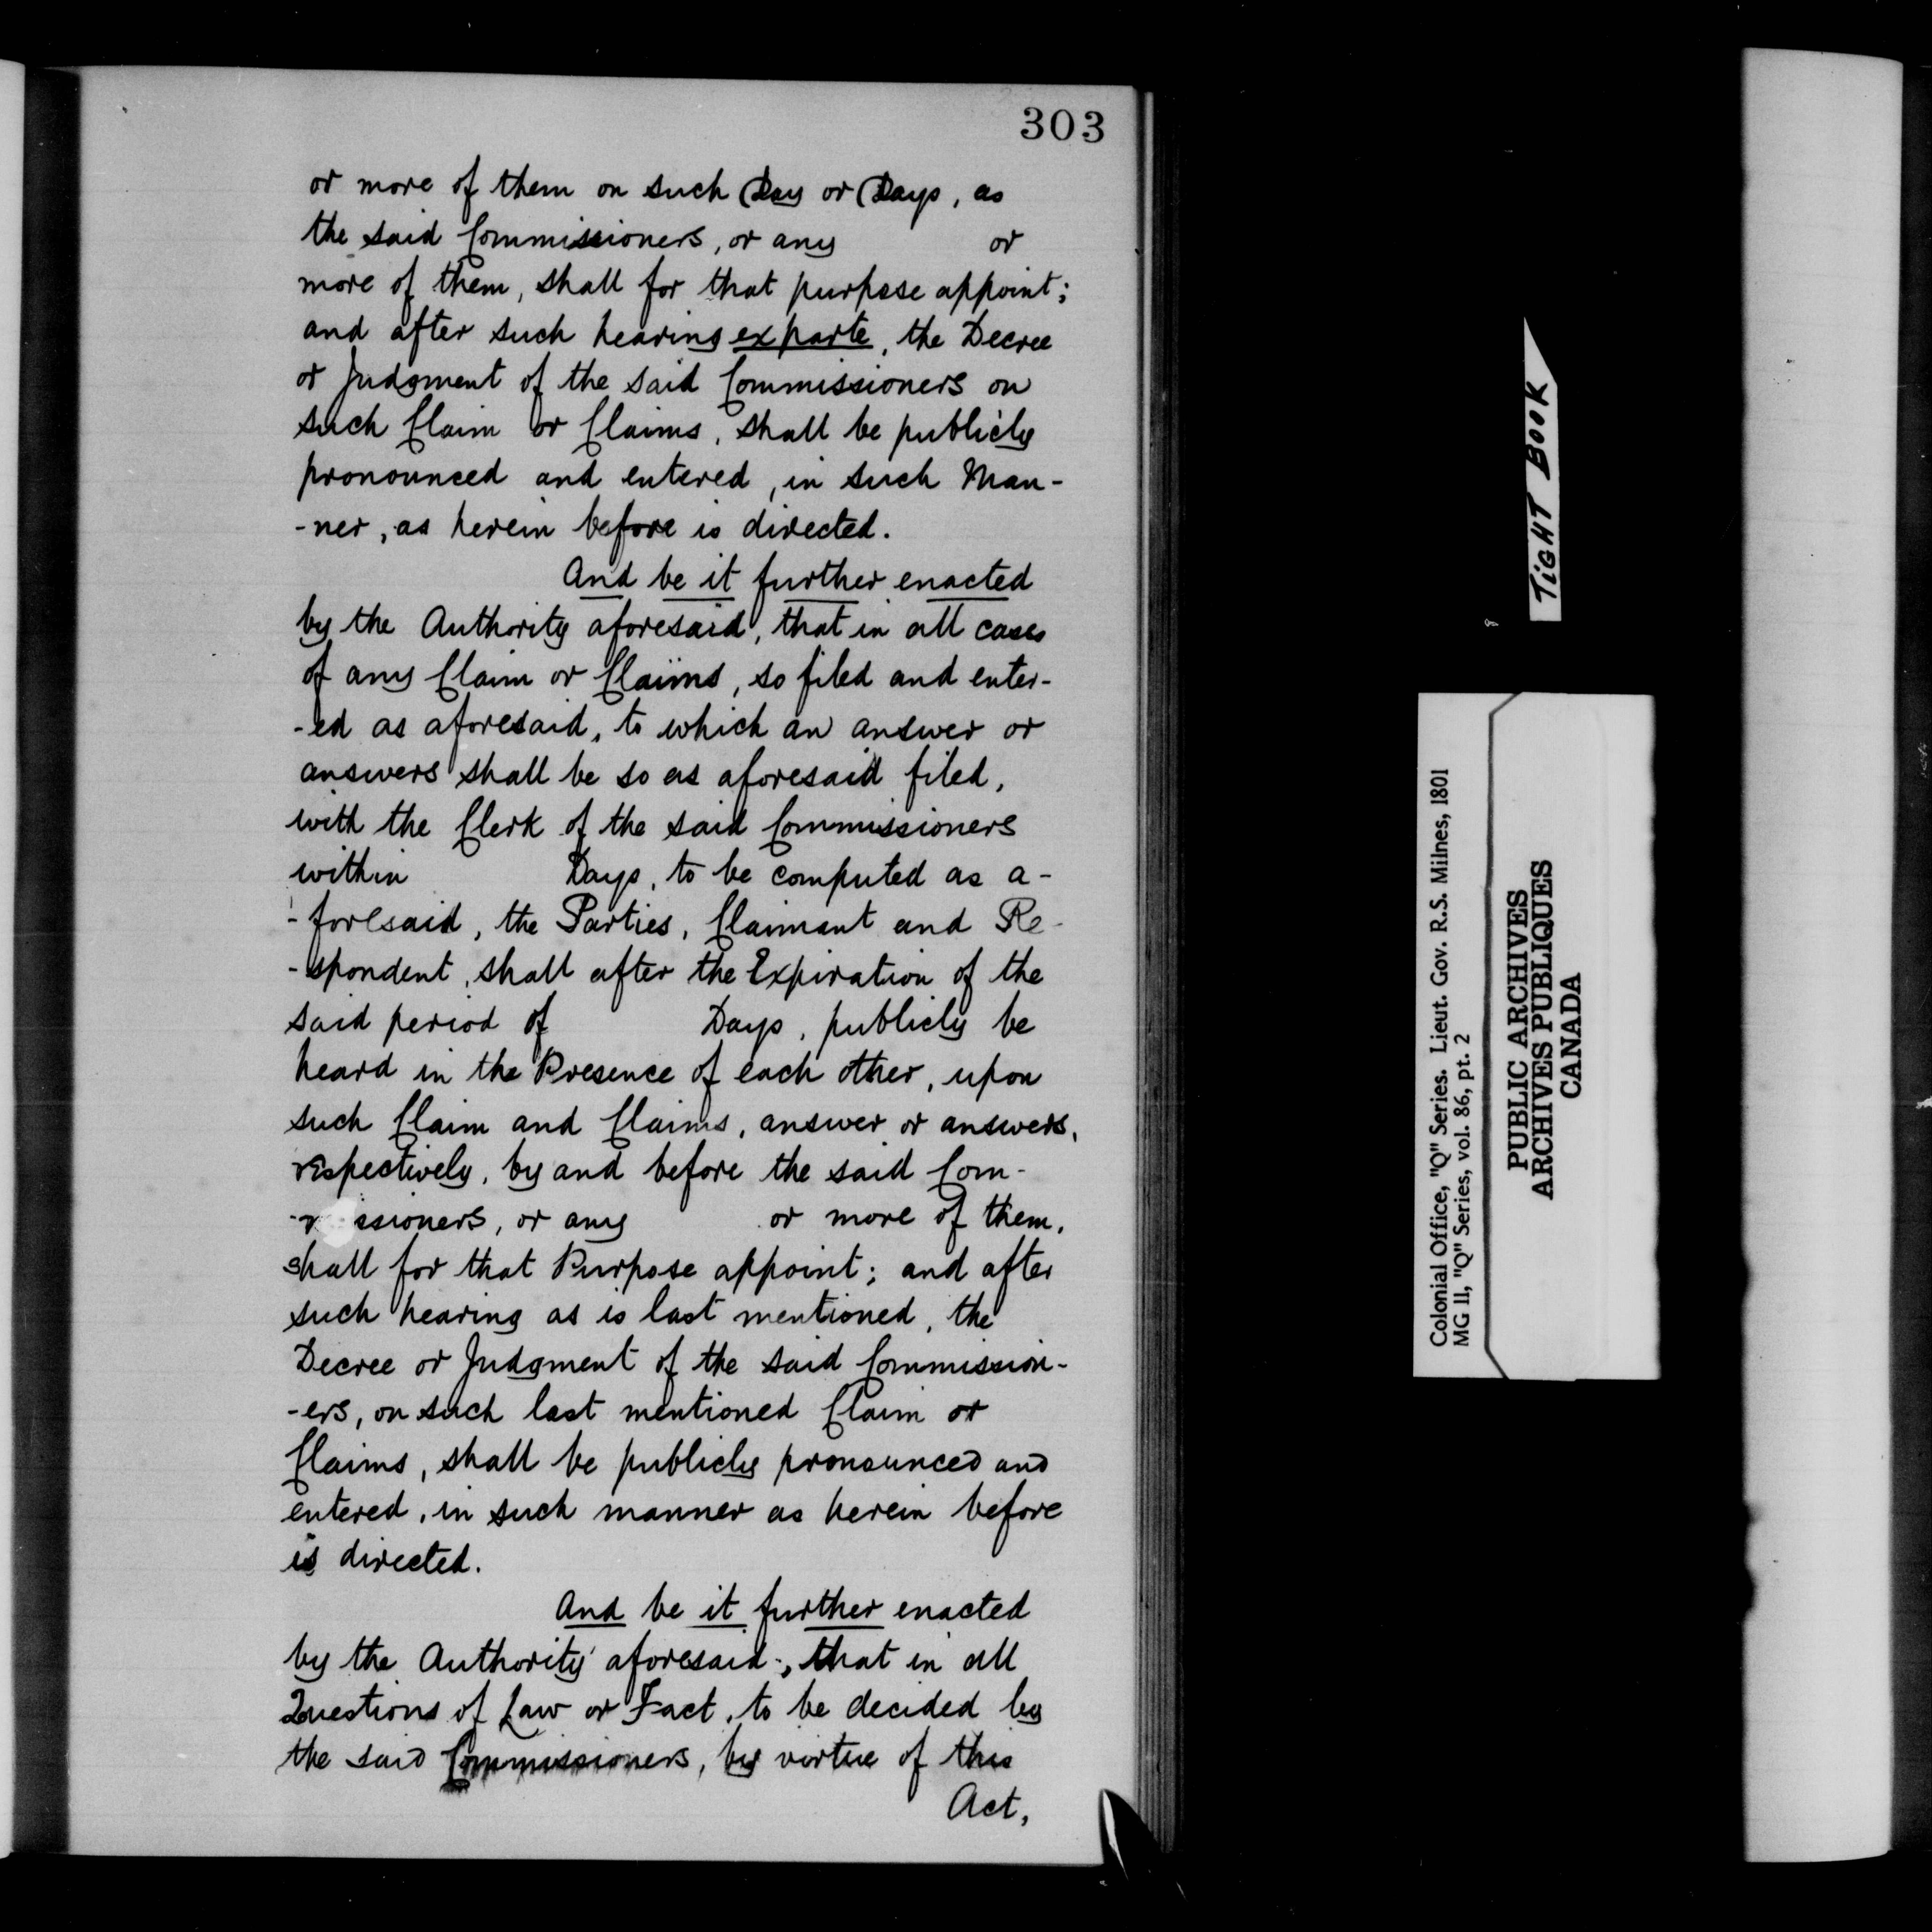 303
or more of them on such Day or Days, as
the said Commissioners, or any or
more of them, shall for that purpose appoint;
and after such hearing ex parte, the Decree
or Judgment of the said Commissioners on
such Claim or Claims, shall be publicly
pronounced and entered, in such Man-
-ner, as herein before is directed.
And be it further enacted
by the Authority aforesaid, that in all cases
of any Claim or Claims, so filed and enter-
-ed as aforesaid, to which an answer or
answers shall be so as aforesaid filed,
with the Clerk of the said Commissioners
within Days, to be computed as a-
-foresaid, the Parties, Claimant and Re-
-spondent, shall after the Expiration of the
said period of Days, publicly be
heard in the Presence of each other, upon
such Claim and Claims, answer or answers,
respectively, by and before the said Com-
ssioners, or any or more of them,
shall for that Purpose appoint; and after
such hearing as is last mentioned, the
Decree or Judgment of the said Commission-
-ers, on such last mentioned Claim or
Claims, shall be publicly pronounced and
entered, in such manner as herein before
is directed.
And be it further enacted
by the Authority aforesaid, that in all
Questions of Law or Fact, to be decided by
the said Commissioners, by virtue of this
Act,
TIGHT BOOK
Colonial Office, "Q" Series. Lieut. Gov. R.S. Milnes, 1801
MG 11, "Q" Series, vol. 86, pt. 2
PUBLIC ARCHIVES
ARCHIVES PUBLIQUES
CANADA